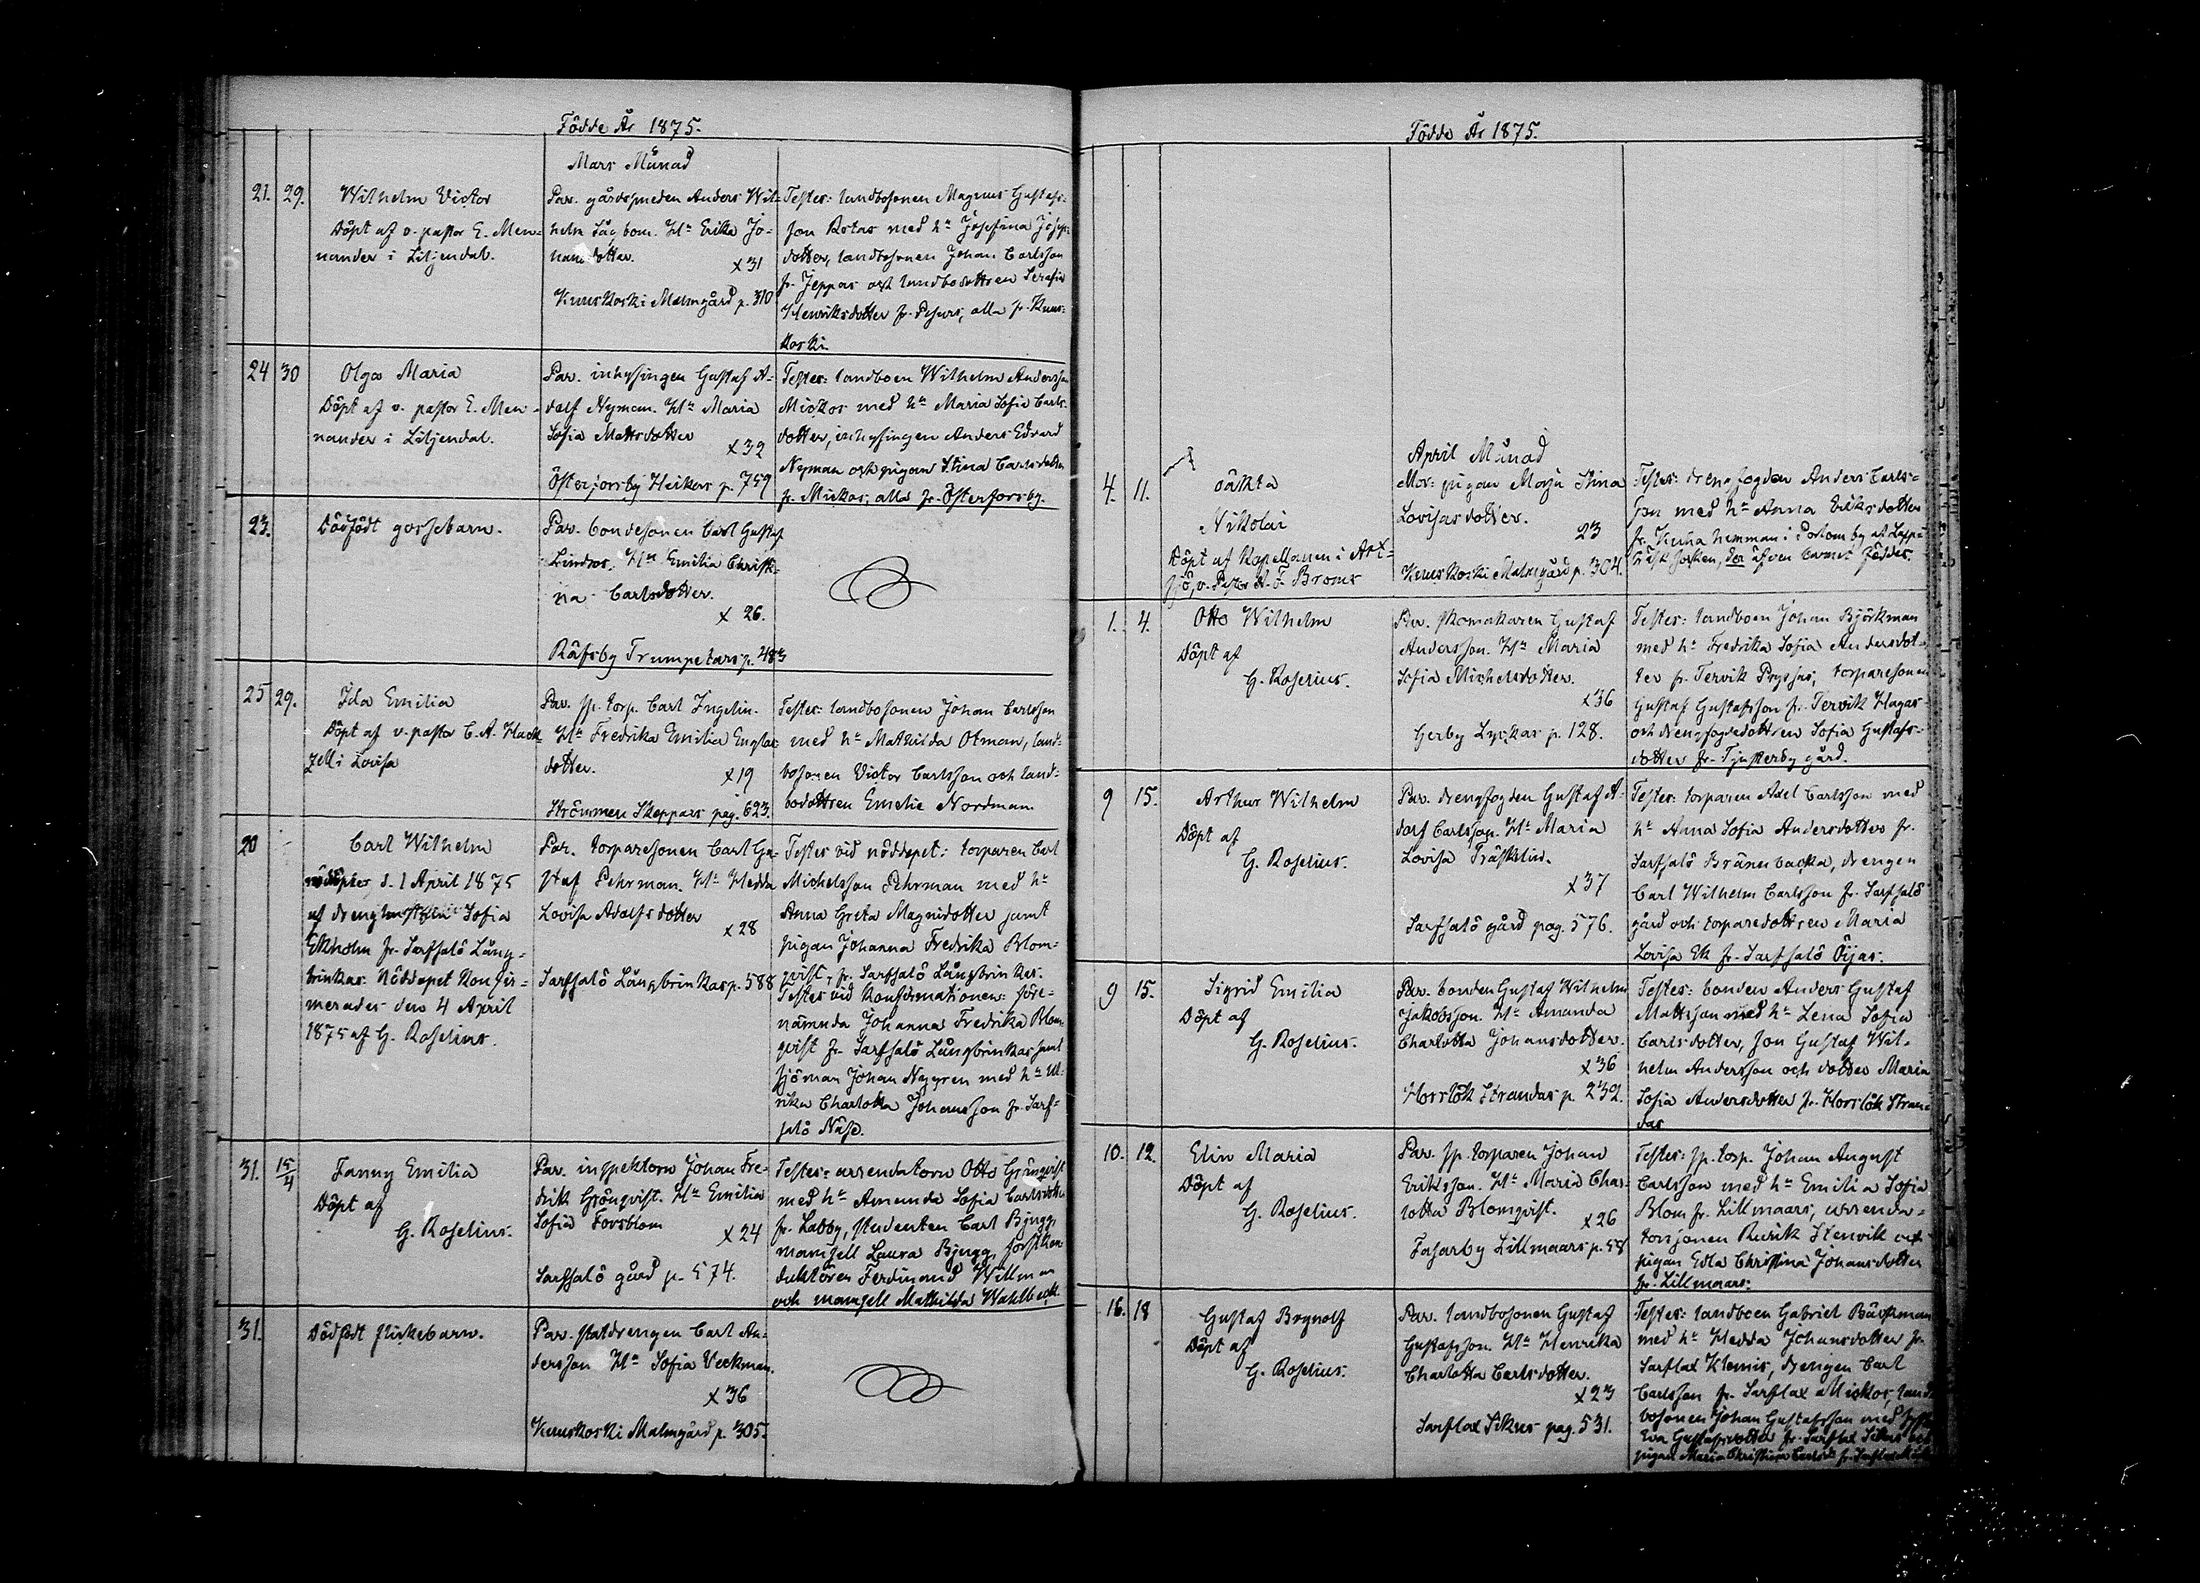 Födde År 1875.
Mars Månad
21. 29. Wilhelm Victor
Döpt af v. pastor E. Men-
nander i Liljendal.
Par. gårdssmeden Anders Wil-
helm Sågbom. H:n Erika Jo-
hansdotter.
x 31
Kuuskoski Malmgård p. 310
Testes: landbosonen Magnus Gustafs-
son Rotas med h:n Josefina Josefs-
dotter, landbosonen Johan Carlsson
fr. Jeppas och landbodottren Serafia
Henriksdotter fr. alla fr. Kuus-
koski.
24 30 Olga Maria
Döpt af v. pastor E. Men-
nander i Liljendal.
Par. inhysingen Gustaf A-
dolf Nyman. H:n Maria
Sofia Mattsdotter
x 32
Österforsby Heikars p. 759
Testes: landboen Wilhelm Andersson
Mickos med h:n Maria Sofia Carls-
dotter, inhysingen Anders Edvard
Nyman och pigan Stina Carlsdotter
fr. Mickos, alla fr. Österforsby.
23. Dödfödt gossebarn.
Par. bondesonen Carl Gustaf
Lindros. H:n Emilia Christi-
na Carlsdotter.
x 26.
Räfsby Trumpetars p. 483
25 29. Ida Emilia
Döpt af v. pastor C. A. Hack-
zell i Lovisa
Par. sp. torp. Carl Ingelin.
H:n Fredrika Emilia Gustafs-
dotter.
x 19
Strömmen Skeppars pag. 623.
Testes: landbosonen Johan Carlsson
med h:n Mathilda Otman, land-
bosonen Victor Carlsson och land-
bodottren Emelie Nordman.
20 Carl Wilhelm
nöddöptes d. 1 April 1875
af Sofia
Ekholm fr. Sarfsalö Lång-
brinkas. Nöddopet konfir-
merades den 4 April
1875 af G. Roselius.
Par. torparesonen Carl Gu-
staf Pehrman. H:n Hedda
Lovisa Adolfsdotter
x 28
Sarfsalö Långbrinkas p. 588
Testes vid nöddopet: torparen Carl
Michelsson Pehrman med h:n
Anna Greta Magnidotter samt
pigan Johanna Fredrika Blom-
qvist, fr. Sarfsalö Långbrinkas.
Testes vid konfirmationen: före-
nämnda Johanna Fredrika Blom-
qvist fr. Sarfsalö Långbrinkas samt
sjöman Johan Nygren med h:n Ul-
rika Charlotta Johansson fr. Sarf-
salö Näse.
31. 15/4 Fanny Emilia
Döpt af
G. Roselius.
Par. inspektorn Johan Fre-
drik Grönqvist. H:n Emilia
Sofia Forsblom
x 24
Sarfsalö gård p. 574.
Testes: arrendatorn Otto Grönqvist
med h:n Amanda Sofia Carlsdotter
fr. Labby, studenten Carl Bjugg,
mamsell Laura Bjugg, forstkon-
duktören Ferdinand Willman
och mamsell Mathilda Wahlbeck.
31. Dödfödt flickebarn.
Par. statdrengen Carl An-
dersson H:n Sofia Veckman.
x 36
Kuuskoski Malmgård p. 305.
Födde År 1875.
April Månad
4. 11. oäkta
Nikolai
Döpt af Kapellanen i Art-
sjö, v. Pastor A. F. Broms
Mor: pigan Maja Stina
Lovisasdotter.
23
Kuuskoski Malmgård p. 304.
Testes: drengfogden Anders Carls-
son med h:n Anna Eriksdotter
fr. hemman i Portom by af Lapp-
träsk socken, der äfven barnet föddes.
1. 4. Otto Wilhelm
Döpt af
G. Roselius.
Par. skomakaren Gustaf
Andersson. H:n Maria
Sofia Michelsdotter.
x 36
Gerby Lyckas p. 128.
Testes: landboen Johan Björkman
med h:n Fredrika Sofia Andersdot-
ter fr. Tervik torparesonen
Gustaf Gustafsson fr. Tervik Hagas
och drengfogdedottren Sofia Gustafs-
dotter fr. Tjusterby gård.
9 15. Arthur Wilhelm
Döpt af
G. Roselius.
Par. drengfogden Gustaf A-
dolf Carlsson. H:n Maria
Lovisa Träsklin.
x 37
Sarfsalö gård pag. 576.
Testes: torparen Axel Carlsson med
h:n Anna Sofia Andersdotter fr.
Sarfsalö Brännbacka, drengen
Carl Wilhelm Carlsson fr. Sarfsalö
gård och torparedottren Maria
Lovisa Ek fr. Sarfsalö Öijas.
9 15. Sigrid Emilia
Döpt af
G. Roselius.
Par. bonden Gustaf Wilhelm
Jakobsson. H:n Amanda
Charlotta Johansdotter.
x 36
Horslök Strandas p. 232.
Testes: bonden Anders Gustaf
Mattsson med h:n Lena Sofia
Carlsdotter, son Gustaf Wil-
helm Andersson och dotter Maria
Sofia Andersdotter fr. Horslök Stran-
das
10. 12. Elin Maria
Döpt af
G. Roselius.
Par. sp. torparen Johan
Eriksson. H:n Maria Char-
lotta Blomqvist.
x 26
Fasarby Lillmaars p. 58
Testes: sp. torp. Johan August
Carlsson med h:n Emilia Sofia
Blom fr. Lillmaars, arrenda-
torssonen Rurik Stenvik och
pigan Edla Christina Johansdotter
fr. Lillmaars.
16. 18 Gustaf Brynolf
Döpt af
G. Roselius.
Par. landbosonen Gustaf
Gustafsson. H:n Henrika
Charlotta Carlsdotter.
x 23
Sarflax Sikus pag. 531.
Testes: landboen Gabriel Bäckman
med h:n Hedda Johansdotter fr.
Sarflax Klemis, drengen Carl
Carlsson fr. Sarflax Mickos, land-
bosonen Johan Gustafsson med
Eva Gustafsdotter fr. Sarflax Sikus och
pigan Maria Christina fr. Sarflax